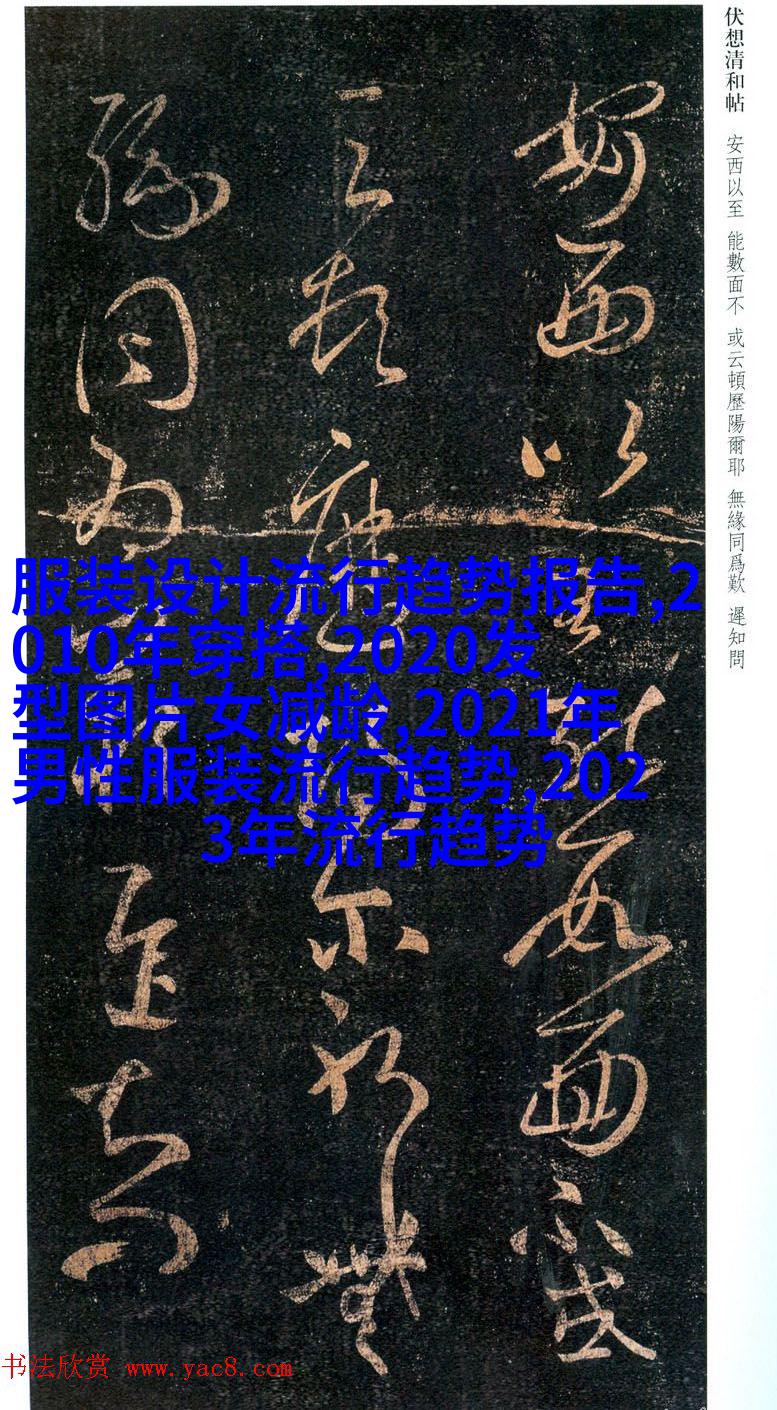 伏想清和帖 安西以至 能數面不 或云頓歷陽爾耶 無緣同爲歎 遲知問
安西以至能數面不或
云頓歷陽爾耶無
緣同爲歎遲知問
服装设计流行趋势报告,2
010年穿搭,2020发
型图片女减龄,2021年
男性服装流行趋势,202
3年流行趋势
书法欣赏 www.yac8.com